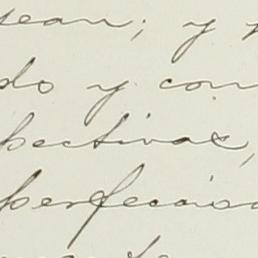 sean; y
do y con
pectivas,
perfeccion